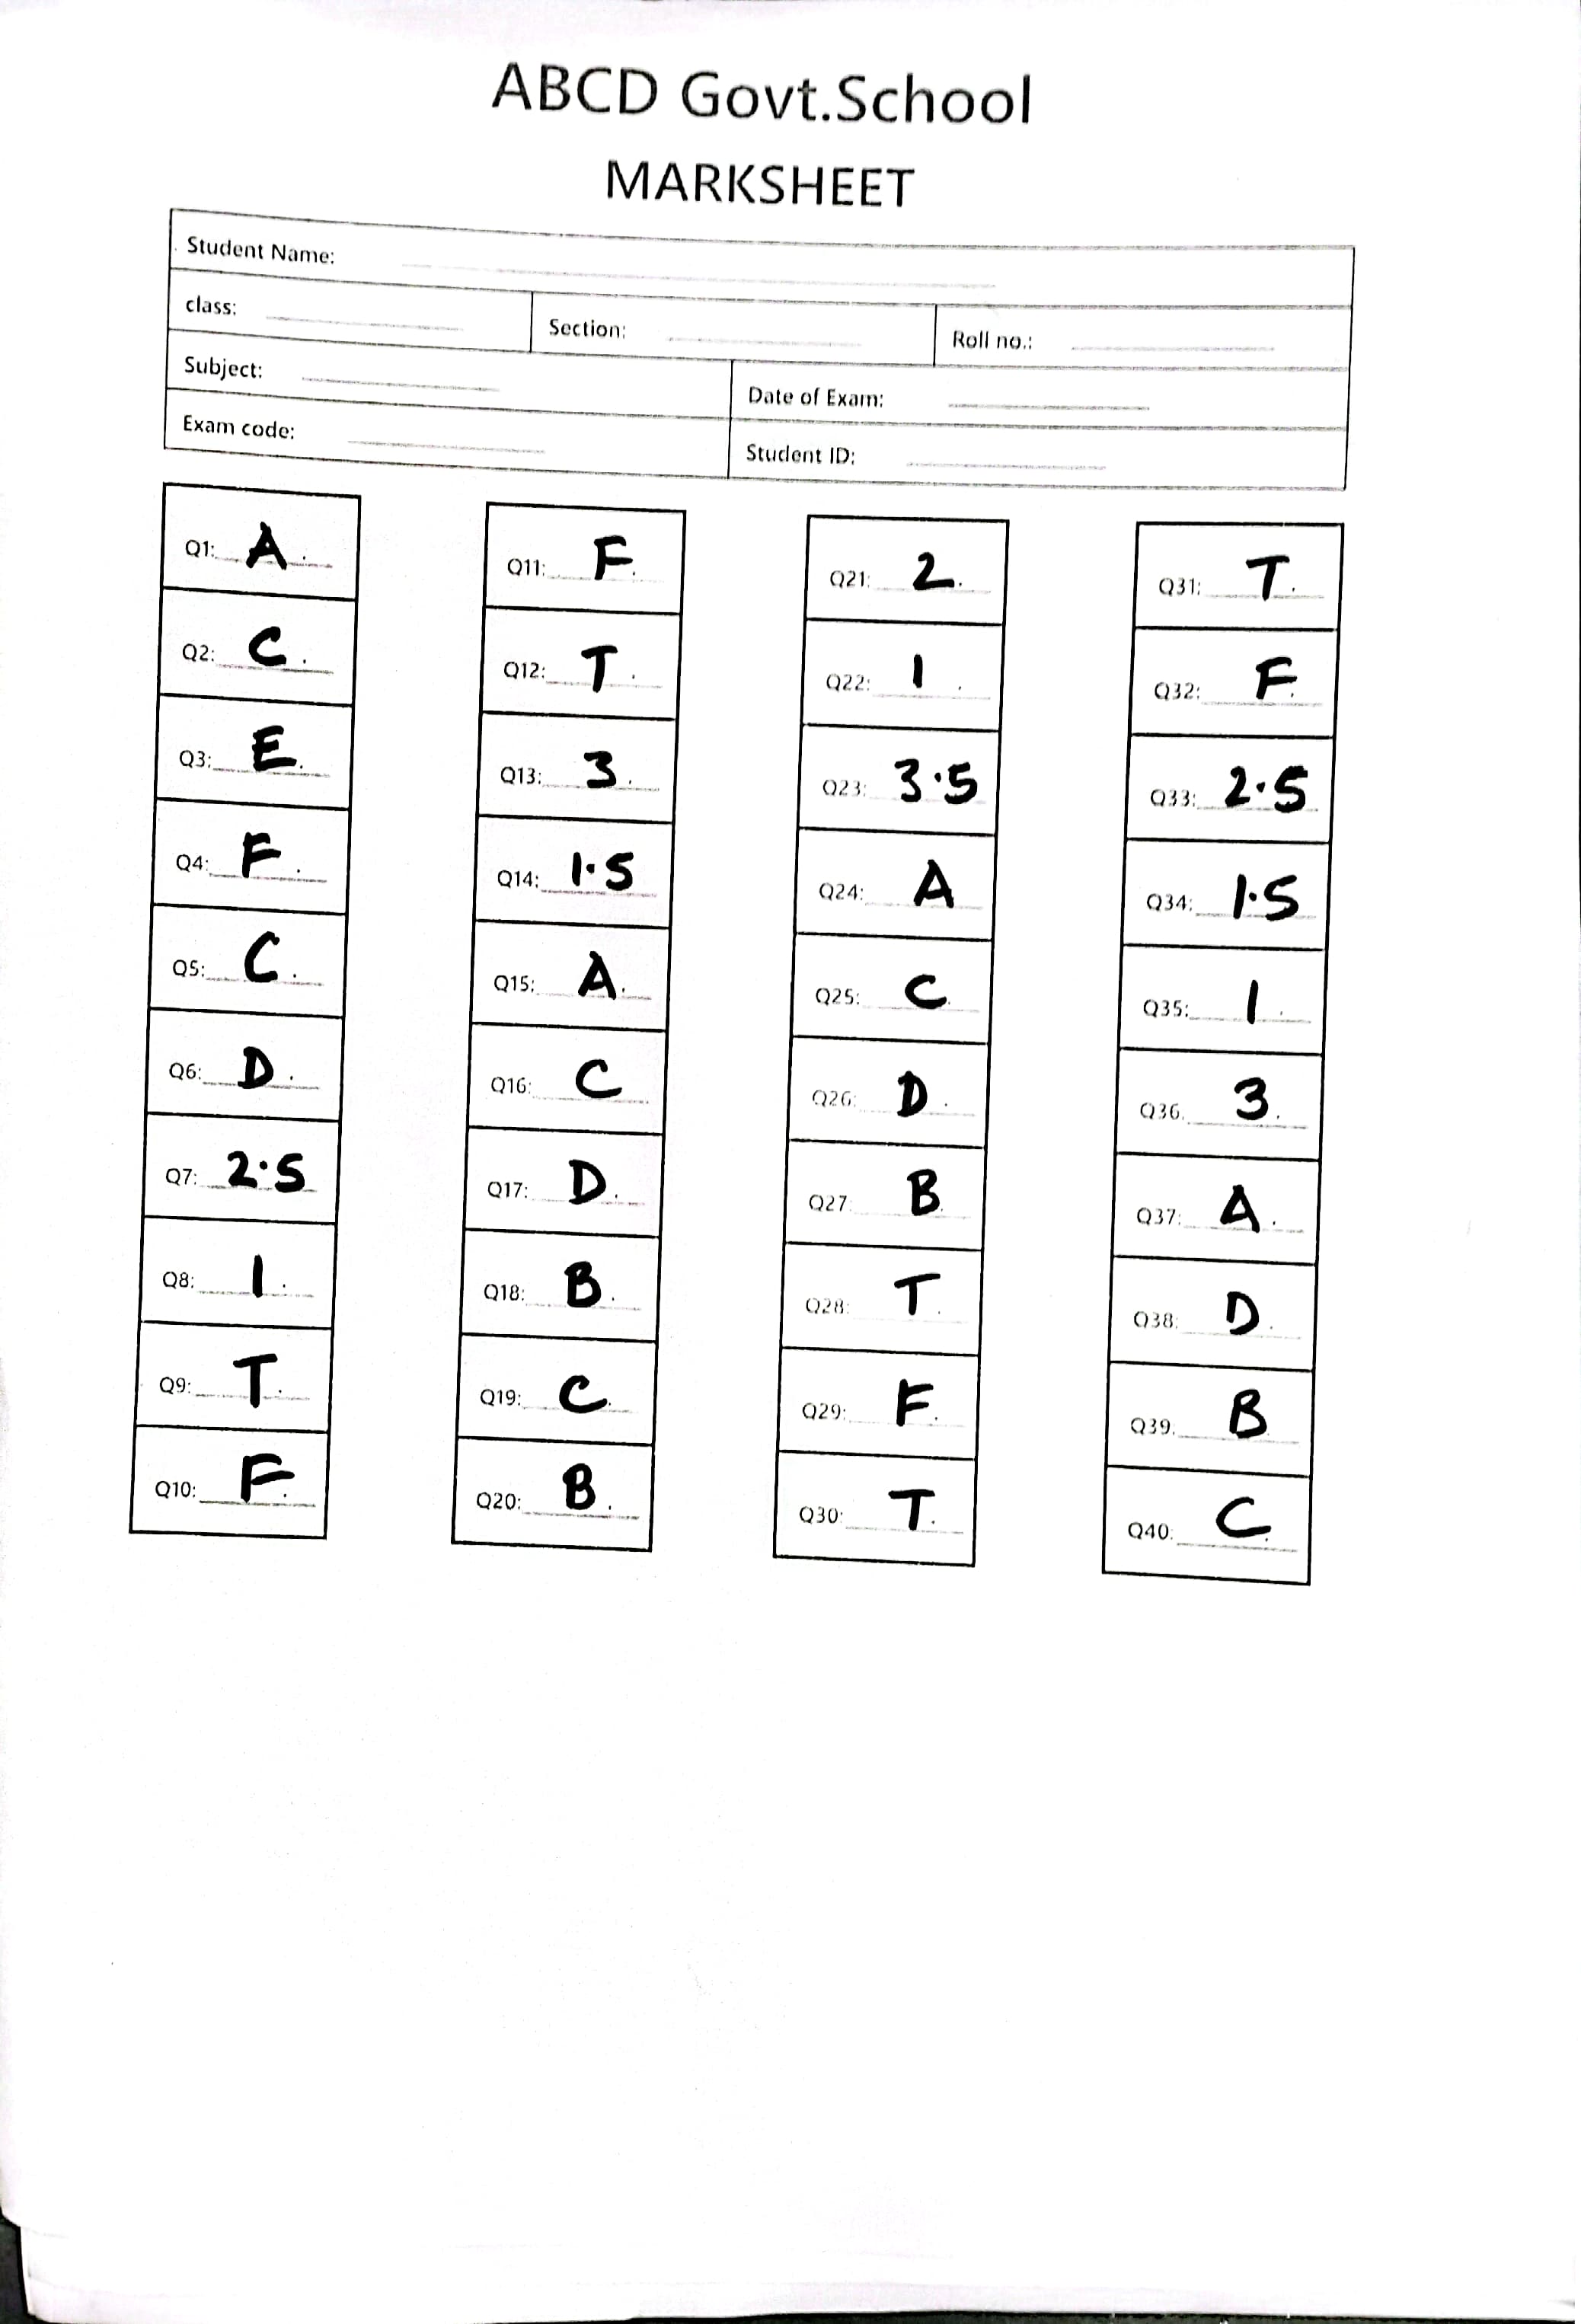 ABCD Govt.School
MARKSHEET
Student Name:
class: Section: Roll no.:
Subject: Date of Exam:
Exam code: Student ID:
Q1: A.
Q2: C.
Q3: E.
Q4: F.
Q5: C.
Q6: D.
Q7: 2.5
Q8: 1.
Q9: T.
Q10: F.
Q11: F.
Q12: T.
Q13: 3.
Q14: 1.5
Q15: A.
Q16: C
Q17: D.
Q18: B.
Q19: C.
Q20: B.
Q21: 2.
Q22: 1.
Q23: 3.5
Q24: A
Q25: C.
Q26: D.
Q27: B.
Q28: T.
Q29: F.
Q30: T.
Q31: T.
Q32: F.
Q33: 2.5
Q34: 1.5
Q35: 1.
Q36. 3.
Q37: A.
Q38: D.
Q39. B
Q40: C.